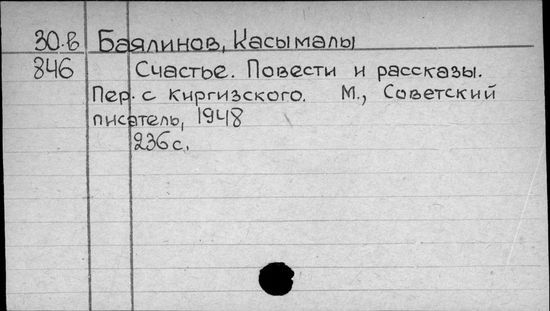 30.в Баялинов, Касымалы
846 Счастье. Повести и рассказы.
Пер. с киргизского. М., Советский
писатель, 1948
236 с.